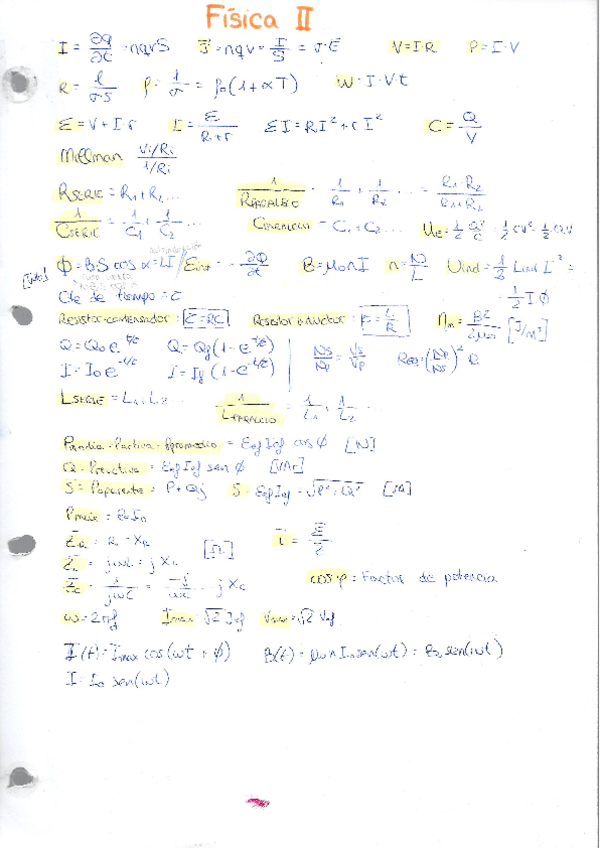 Física II
I = ∂q/∂t = nqvS   J = nqv = I/S = σ·E   V = I·R   P = I·V
R = l/σ·S   ρ = 1/σ = ρ₀(1+αT)   W = I·V t
ε = V + I·r   I = ε/R+r   εI = RI² + rI²   C = Q/V
Millman Vi/Ri / 1/Ri
RSERIE = R₁+R₂...   1/RPARALELO = 1/R₁ + 1/R₂ ... = R₁·R₂/R₁+R₂
1/CSERIE = 1/C₁ + 1/C₂ ...   CPARALELO = C₁+C₂...   = 1/2 Q²/C = 1/2 CV² = 1/2 Q·V
Φ = B·S cos α = LI   = - ∂Φ/∂t   B = μ₀nI   n = N/L   Uind = 1/2 Lind I² =
= 1/2 I Φ
Cte de tiempo = τ
Resistor-condensador: τ=RC   Resistor inductor: τ = L/R   ηm = B²/2μ₀ [J/m³]
Q = Q₀e^-t/τ   Q = Qf(1-e^-t/τ)   Ns/Np = Vs/Vp   Req = (Np/Ns)² R
I = I₀e^-t/τ   I = If(1-e^-t/τ)
LSERIE = L₁+L₂...   1/LPARALELO = 1/L₁ + 1/L₂ ...
Pmedia = Pactiva = Ppromedio = Eef Ief cos φ   [W]
Q = Preactiva = Eef Ief sen φ   [VAr]
S = Paparente = P + Qj   S = Eef Ief = √P²+Q²   [VA]
Pmax = E₀I₀
= R = XR   [Ω]   I = E/Z
= jωL = j XL
= 1/jωC = -j/ωC   j XC   cos φ = Factor de potencia
ω = 2πf   Imax = √2 Ief   Vmax = √2 Vef
I(t) = Imax cos(ωt + φ)   B(t) = μ₀ n I₀ sen(ωt) = B₀ sen(ωt)
I = I₀ sen(ωt)